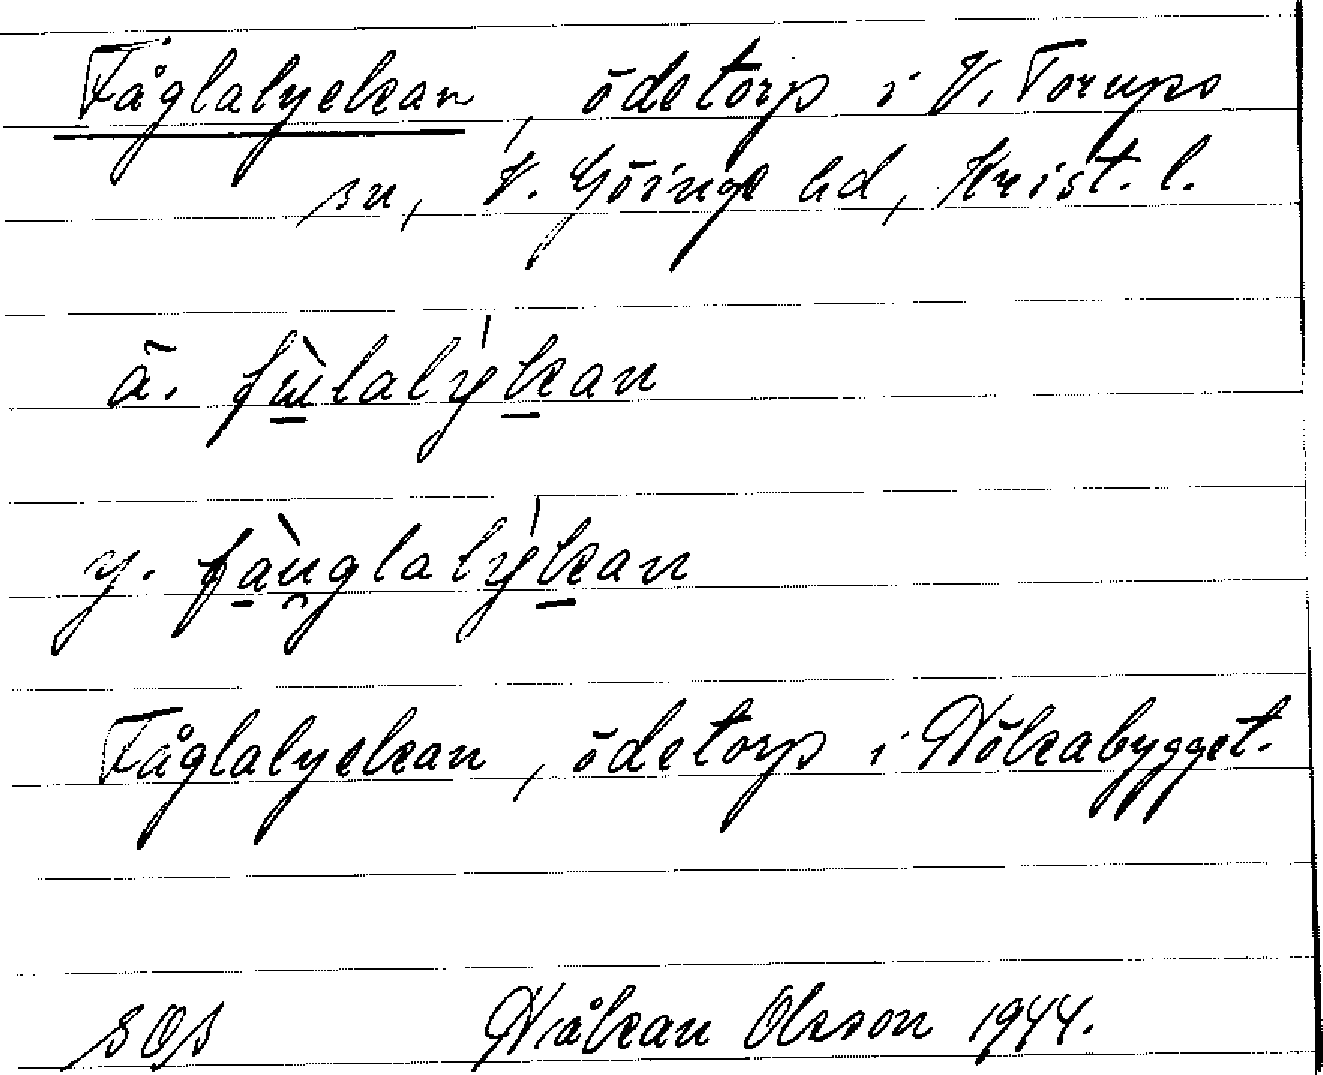 Fåglalyckan, ödetorp i V. Torups
sn, V. Göinge hd, Krist. l.
ä. fùlalýkan
y. fàuglalýkan
Fåglalyckan, ödetorp i Hökabygget.
SOS Håkan Olsson 1944.